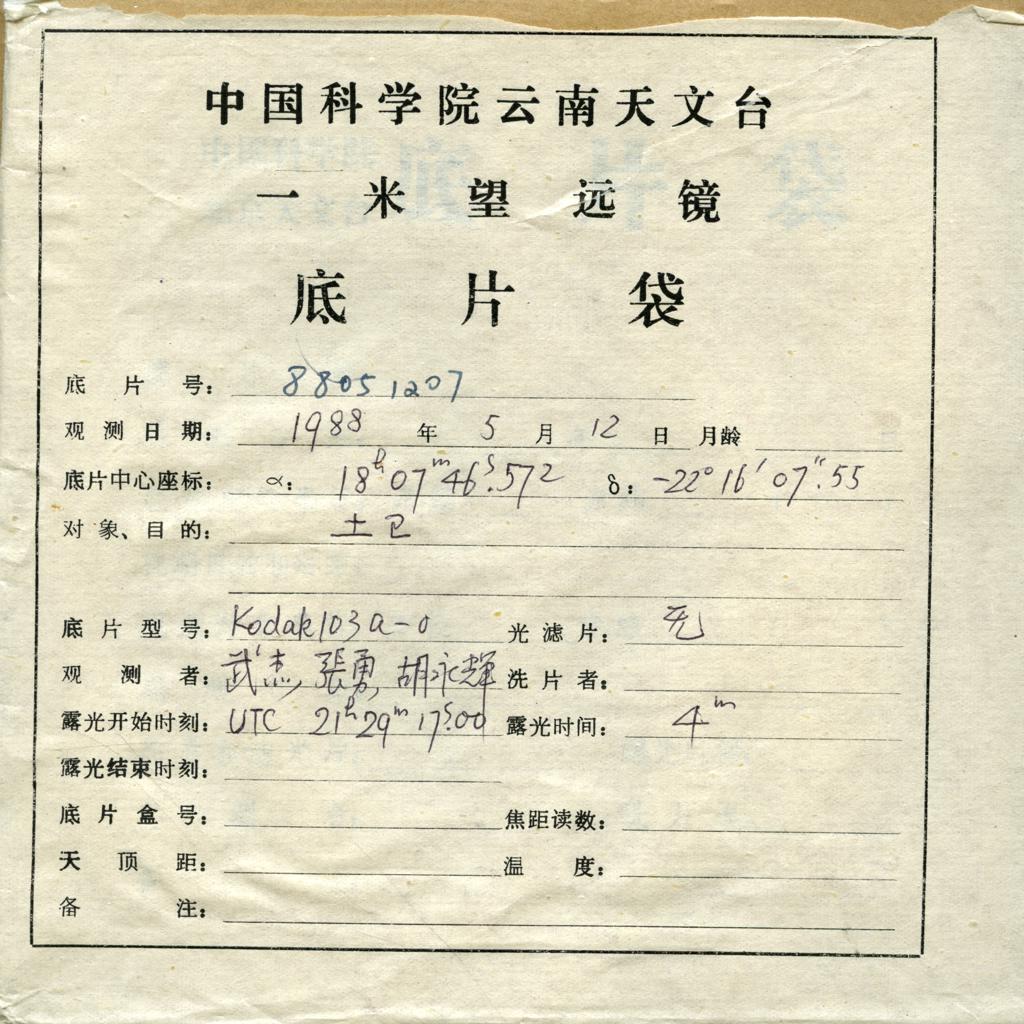 中国科学院云南天文台
一米望远镜
底片袋
底片号: 88051207
观测日期: 1988 年 5 月 12 日 月龄
底片中心座标: α: 18h07m46s.572 δ: -22°16′07″.55
对象、目的: 土卫
底片型号: Kodak103a-O 光滤片: 无
观测者: 武杰, 張勇, 胡永輝 洗片者:
露光开始时刻: UTC 21h29m17s.00 露光时间: 4m
露光结束时刻:
底片盒号: 焦距读数:
天顶距: 温度:
备注: